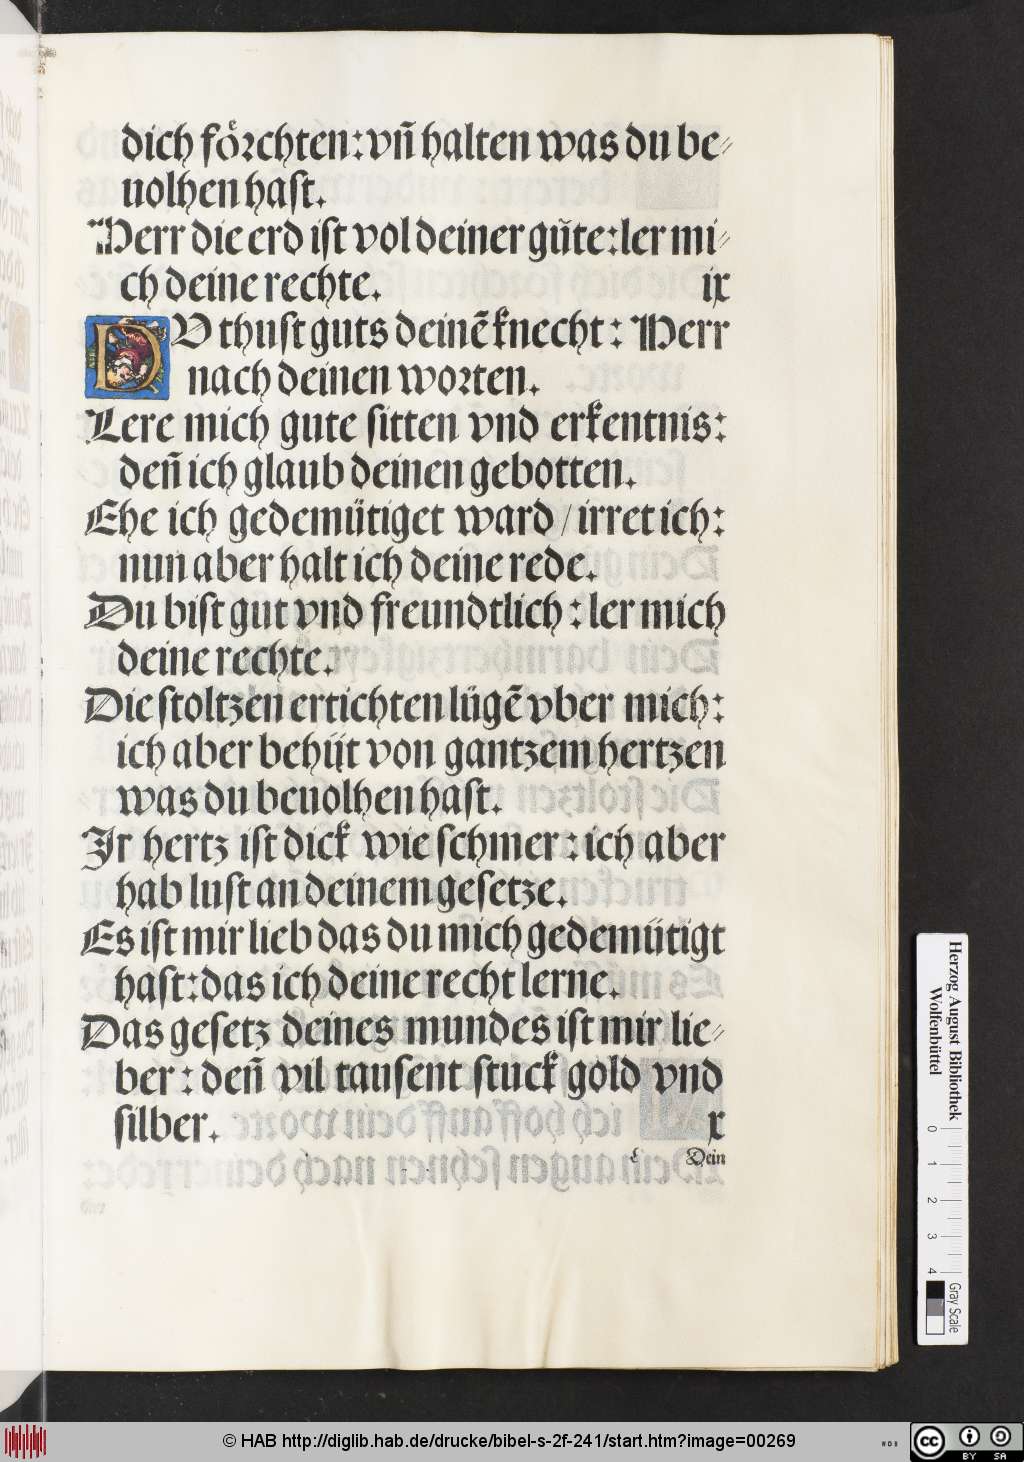 dich föꝛchten: vñ halten was du be⸗
uolhen hast.
Herr die erd ist vol deiner gu̎te: ler mi⸗
ch deine rechte. ix
DV thust guts deinẽ knecht: Herr
nach deinen woꝛten.
Lere mich gute sitten vnd erkentnis:
deñ ich glaub deinen gebotten.
Ehe ich gedemütiget ward / irret ich:
nun aber halt ich deine rede.
Du bist gut vnd freundtlich: ler mich
deine rechte.
Die stoltzen ertichten lügẽ vber mich:
ich aber behüt von gantzem hertzen
was du beuolhen hast.
Jr hertz ist dick wie schmer: ich aber
hab lust an deinem gesetze.
Es ist mir lieb das du mich gedemütigt
hast: das ich deine recht lerne.
Das gesetz deines mundes ist mir lie⸗
ber: deñ vil tausent stuck gold vnd
silber. x
Dein
Herzog August Bibliothek
Wolfenbüttel
0 1 2 3 4
Gray Scale
© HAB http://diglib.hab.de/drucke/bibel-s-2f-241/start.htm?image=00269
WDB
cc BY SA